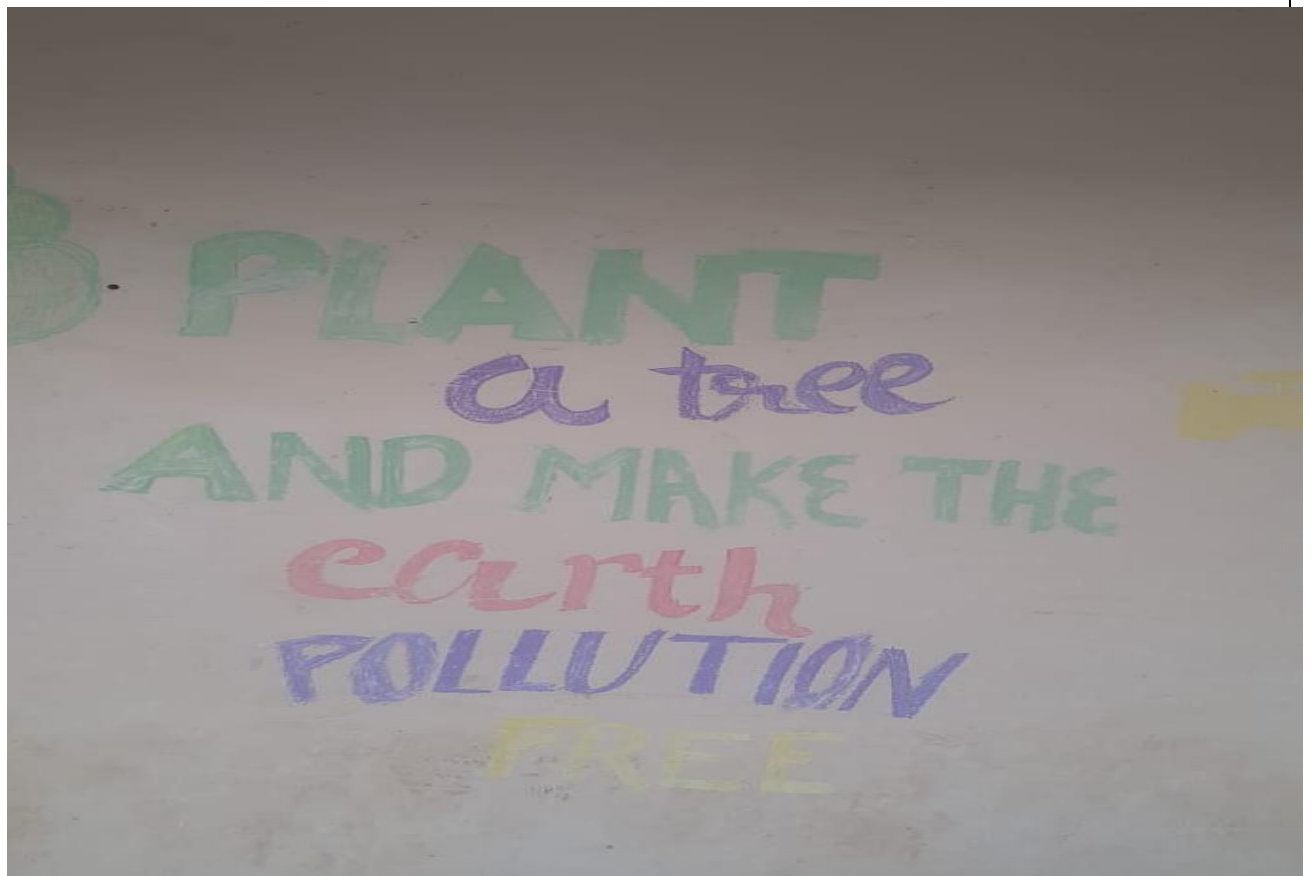 PLANT
a tree
AND MAKE THE
earth
POLLUTION
FREE